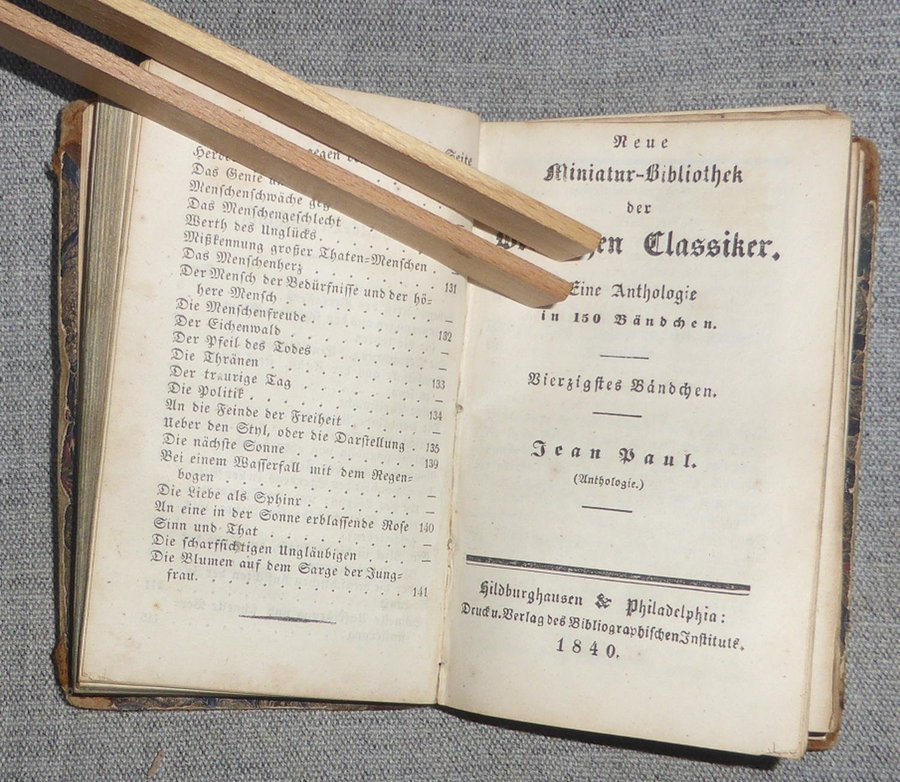 Seite
Das Genie
Menschenschwäche
Das Menschengeschlecht . . .
Werth des Unglücks. . . .
Mißkennung großer Thaten-Menschen . —
Das Menschenherz . . . . . 131
Der Mensch der Bedürfnisse und der hö-
here Mensch . . . . . —
Die Menschenfreude . . . . . 132
Der Eichenwald . . . . . —
Der Pfeil des Todes . . . . . —
Die Thränen . . . . . —
Der traurige Tag . . . . . 133
Die Politik . . . . . —
An die Feinde der Freiheit . . . . 134
Ueber den Styl, oder die Darstellung . 135
Die nächste Sonne . . . . . 139
Bei einem Wasserfall mit dem Regen-
bogen . . . . . —
Die Liebe als Sphinx . . . . . —
An eine in der Sonne erblassende Rose 140
Sinn und That . . . . . —
Die scharfsichtigen Ungläubigen . . . —
Die Blumen auf dem Sarge der Jung-
frau. . . . . . 141
Neue
Miniatur-Bibliothek
der
Classiker.
Eine Anthologie
in 150 Bändchen.
Vierzigstes Bändchen.
Jean Paul.
(Anthologie.)
Hildburghausen & Philadelphia:
Druck u. Verlag des Bibliographischen Instituts.
1840.